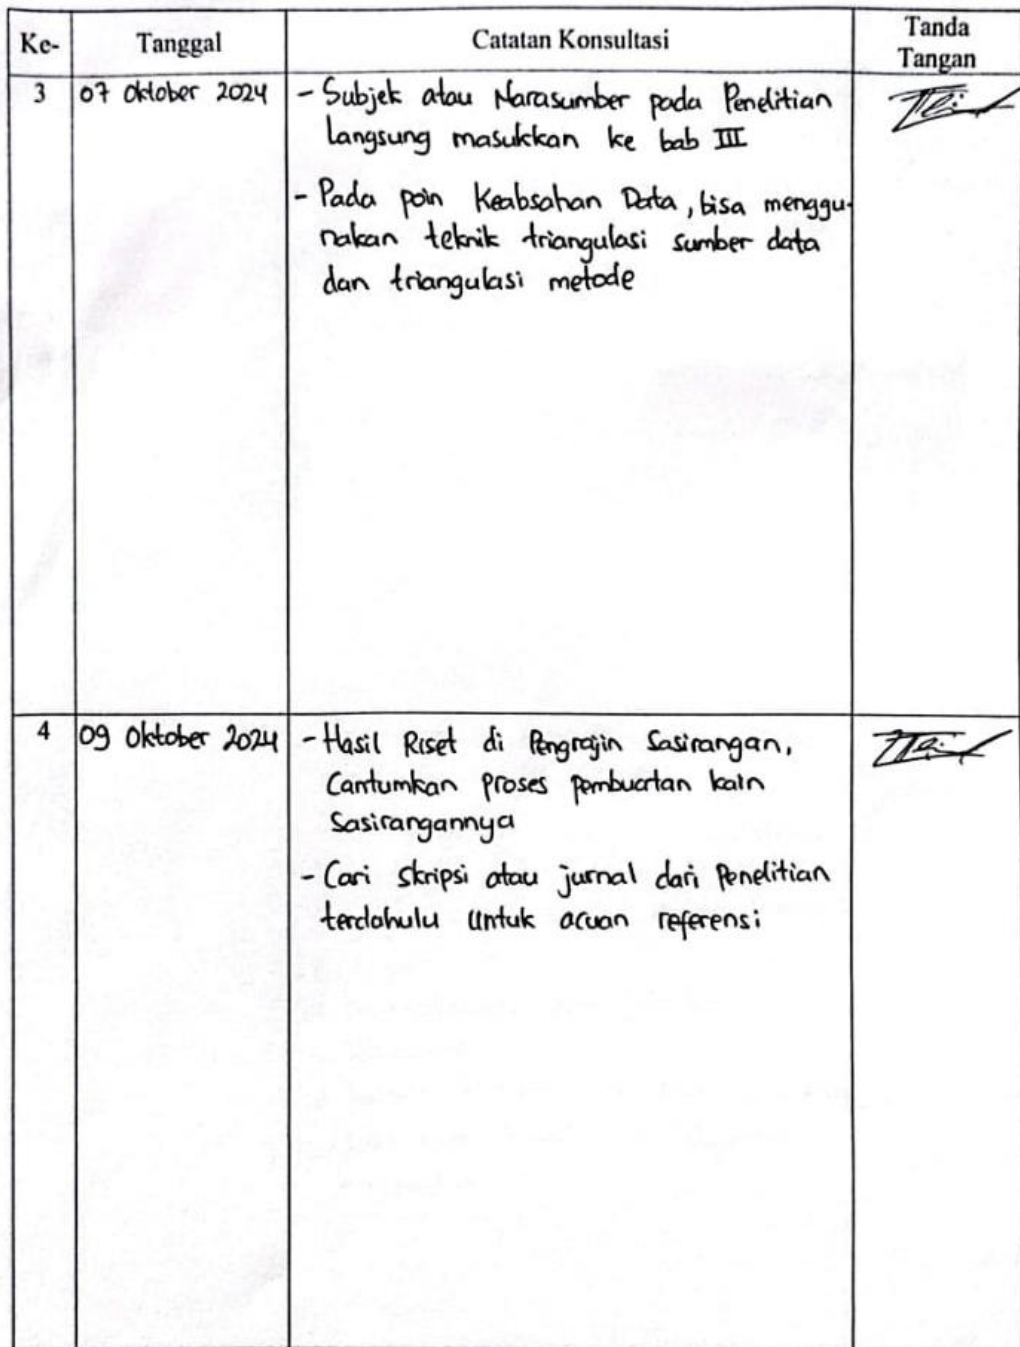 Ke- Tanggal Catatan Konsultasi Tanda
Tangan
3 07 Oktober 2024 - Subjek atau Narasumber pada Penelitian
Langsung masukkan ke bab III
- Pada poin Keabsahan Data, bisa menggu-
nakan teknik triangulasi sumber data
dan triangulasi metode
4 09 Oktober 2024 - Hasil Riset di Pengrajin Sasirangan,
Cantumkan proses pembuatan kain
Sasirangannya
- Cari skripsi atau jurnal dari Penelitian
terdahulu untuk acuan referensi